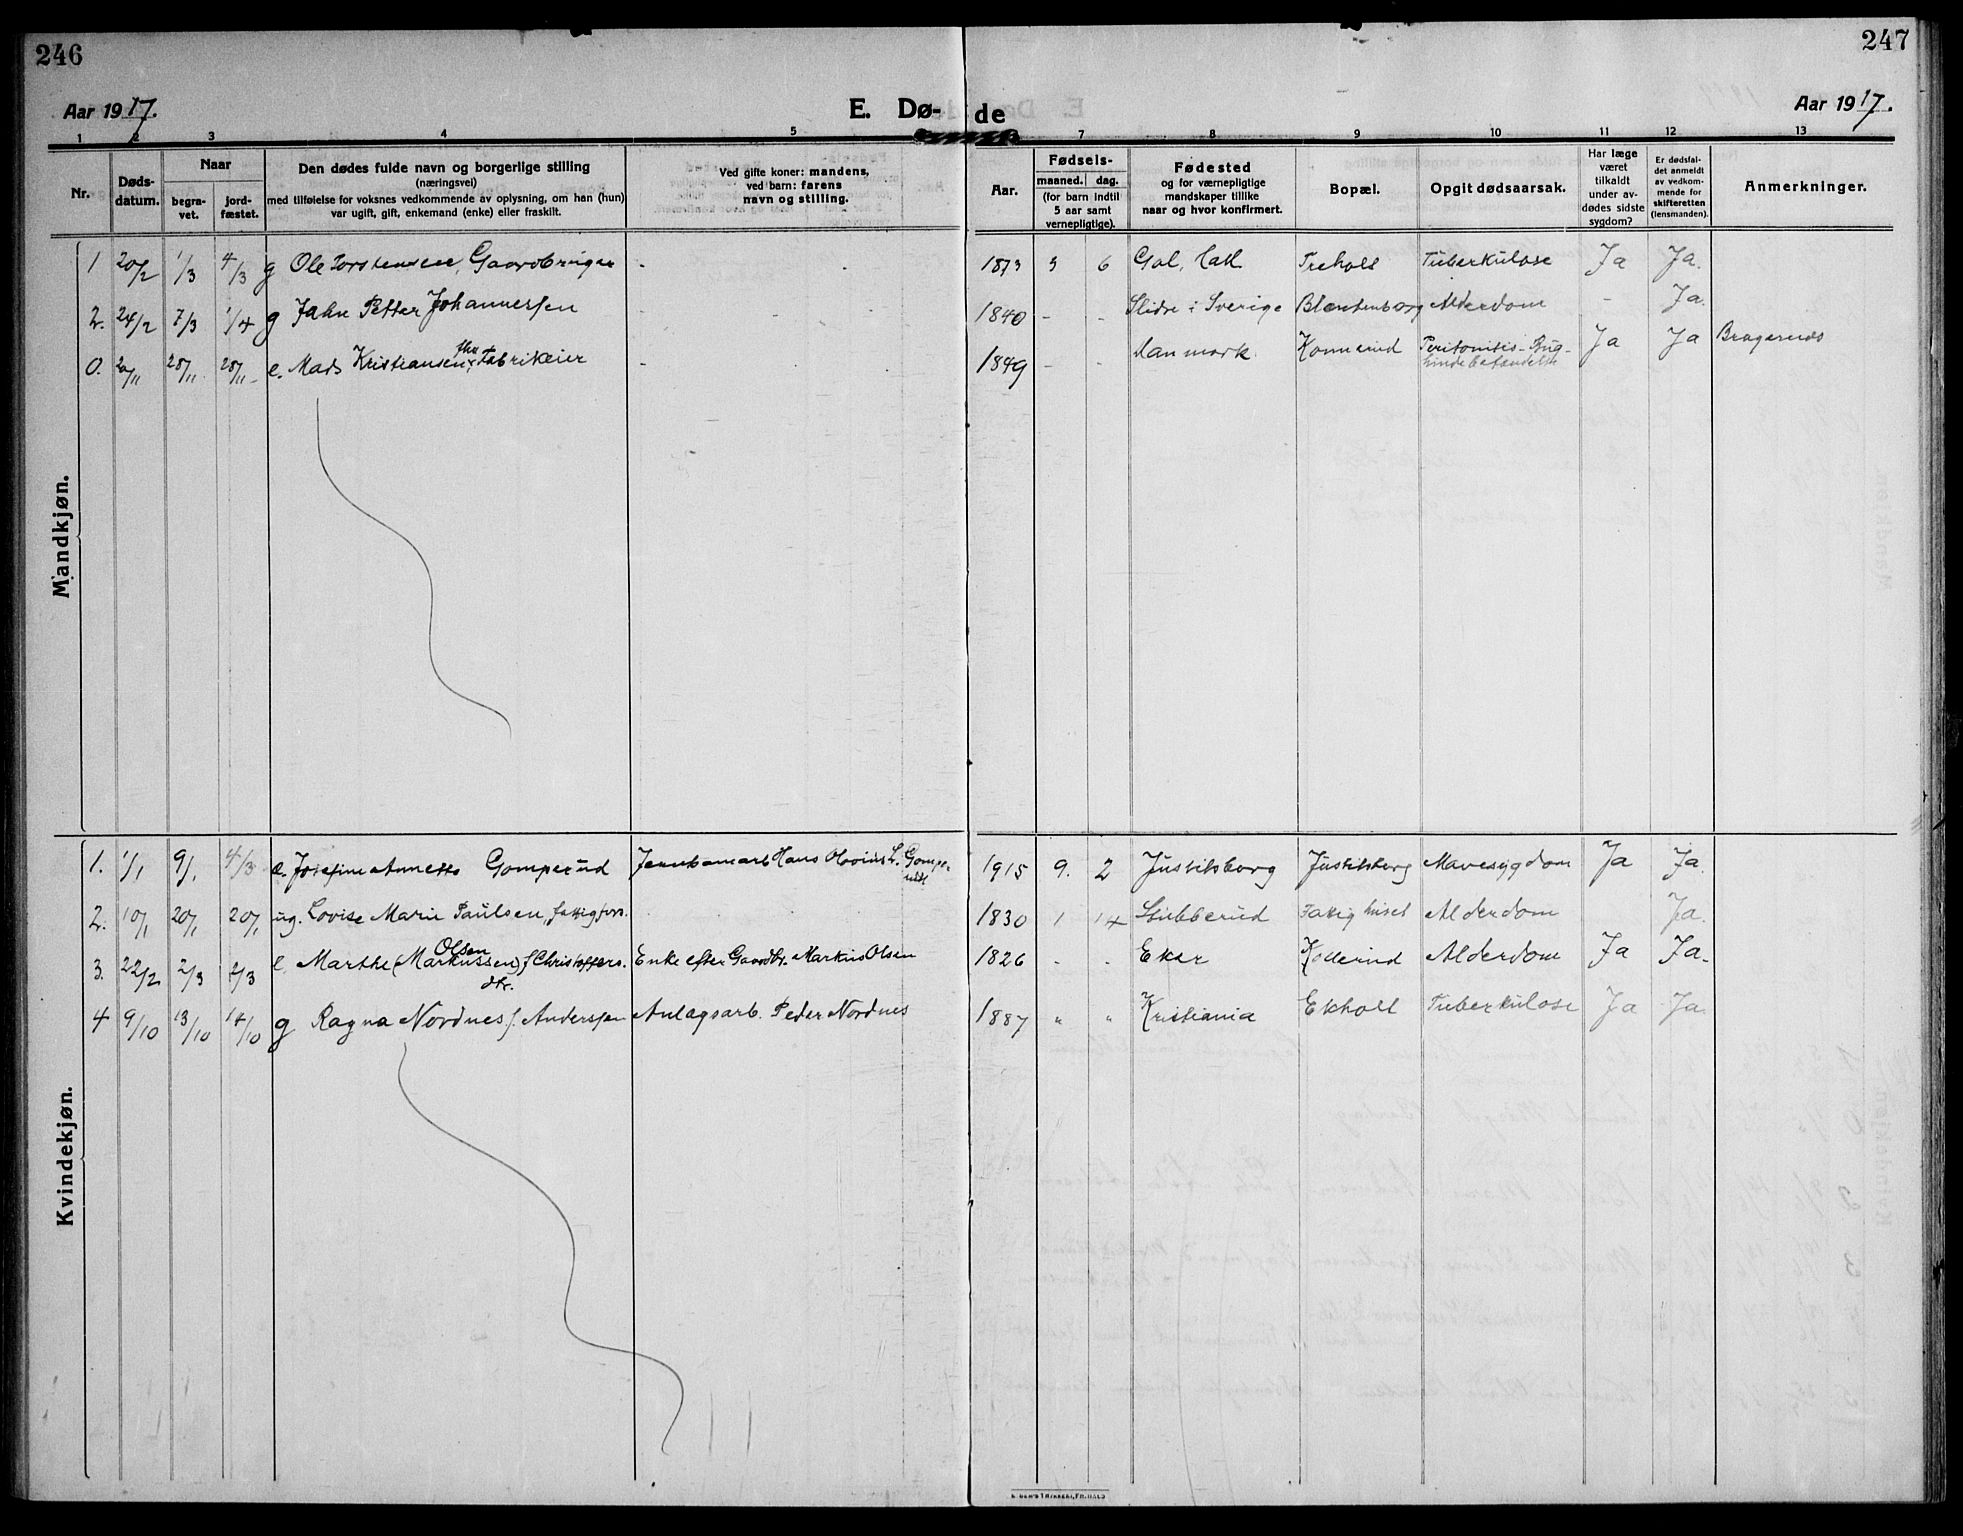 246
247
Aar 1917.
E. Dø-
de
Aar 1917.
1 2 3 4 5 7 8 9 10 11 12 13
Nr.
Døds-
datum.
Naar
begra-
vet.
jord-
fæstet.
Den dødes fulde navn og borgerlige stilling
(næringsvei)
med tilføielse for voksnes vedkommende av oplysning, om han (hun)
var ugift, gift, enkemand (enke) eller fraskilt.
Ved gifte koner: mandens,
ved barn: farens
navn og stilling.
Aar.
Fødsels-
maaned. dag.
(for barn indtil
5 aar samt
vernepligtige).
Fødested
og for værnepligtige
mandskaper tillike
naar og hvor konfirmert.
Bopæl.
Opgit dødsaarsak.
Har læge
været
tilkaldt
under av-
dødes sidste
sygdom?
Er dødsfal-
det anmeldt
av vedkom-
mende for
skifteretten
(lensmanden).
Anmerkninger.
Mandkjøn.
1 20/2 1/3 4/3 g Ole Torstensen, Gaardbruger - 1873 5 6 Gol, Hall. Treholt Tuberkulose Ja Ja.
2. 24/2 7/3 1/4 g Jahn Petter Johannessen 1840 - - Slidre i Sverige Alderdom - Ja.
0. 20/11 28/11 28/11 e. Mads Kristiansen, fhv. Fabrikeier - 1849 - - Danmark. Konnerud Peritonitis - Bug-
hindebetændelse Ja Ja Bragernes
Kvindekjøn.
1. 1/1 9/1 4/3 e. Josefine Annette Gomperud Jernbanearb Hans Olovius L. Gompe-
rud 1915 9. 2 Justitsborg Justitsberg Mavesygdom Ja Ja.
2. 10/1 20/1 20/1 ug. Lovise Marie Paulsen, fattigfors. 1830 1 14 Stubberud Fattighuset Alderdom Ja.
3. 22/2 2/3 2/3 e. Marthe (Markussen) Olsen f Christoffers.
dtr. Enke efter Gaardbr. Markus Olsen 1826 - - Eker Kollerud Alderdom Ja Ja.
4 9/10 13/10 14/10 g Ragna Nordnes f. Anderssen Anlægsarb. Peder Nordnes 1887 " " Kristiania Ekholt Tuberkulose Ja Ja.